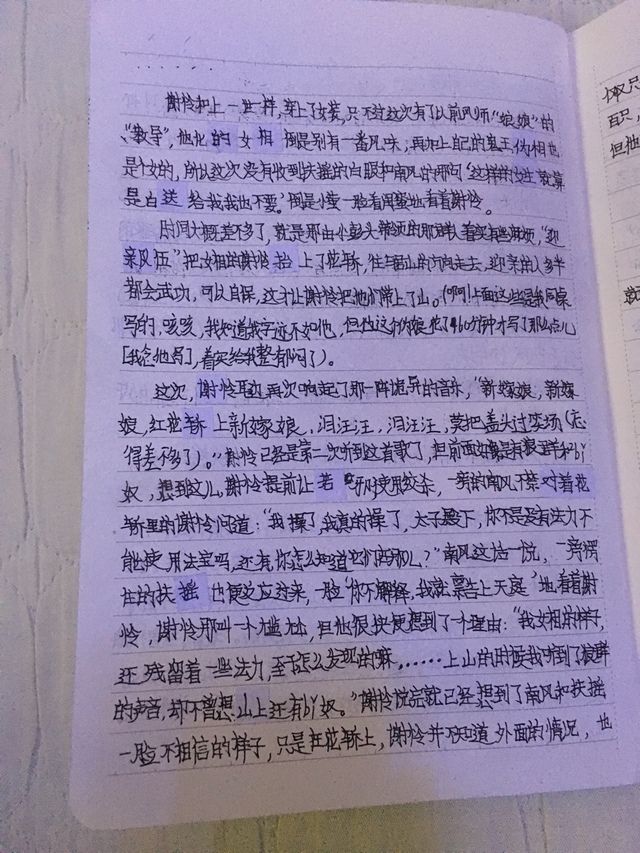 ······
谢怜和上一世一样，穿上了女装，只不过这次有了以前风师"娘娘"的
"教导"，他化的女相倒是别有一番风味，再加上自己的鬼王伪相也
是个女的，所以这次没有收到扶摇的白眼和南风的那句'这样的女生就算
是白送给我我也不要。'倒是小萤一脸看闺蜜地看着谢怜。
时间大概差不多了，就是那由小彭头带领的那群人着实有些麻烦，"迎
亲队伍"把女相的谢怜抬上了花轿，往与君山的方向走去，迎亲的人多半
都会武功，可以自保，这才让谢怜把他们带上了山。(啊!上面这些是我同桌
写的，咳咳，我知道我字迹不如他，但他这个构思花了460分钟才写了那么点儿
[我念他写]，着实给我整郁闷了)。
这次，谢怜耳边再次响起了那一阵诡异的音乐，"新嫁娘，新嫁
娘，红花轿上新嫁娘，泪汪汪，泪汪汪，莫把盖头过 (忘
得差不多了)。"谢怜已经是第二次听到这首歌了，但前面好像是有狼群和bǐ
奴，想到这儿，谢怜提前让若邪快使用绞杀，一旁的南风 对着花
轿里的谢怜问道："我操了，我真的操了，太子殿下，你不是没有法力不
能使用法宝吗，还有，你怎么知道它们在那儿?"南风这话一说，一旁愣
住的扶摇也便反应过来，一脸'你不解释，我就禀告上天庭'地看着谢
怜，谢怜那叫一个尴尬，但他很快便想到了个理由："我女相的样子，
还残留着一些法力，至于怎么发现的嘛，······上山的时候我听到了狼群
的声音，却不曾想，山上还有bǐ奴。"谢怜说完就已经想到了南风和扶摇
一脸不相信的样子，只是在花轿上，谢怜并不知道外面的情况，也